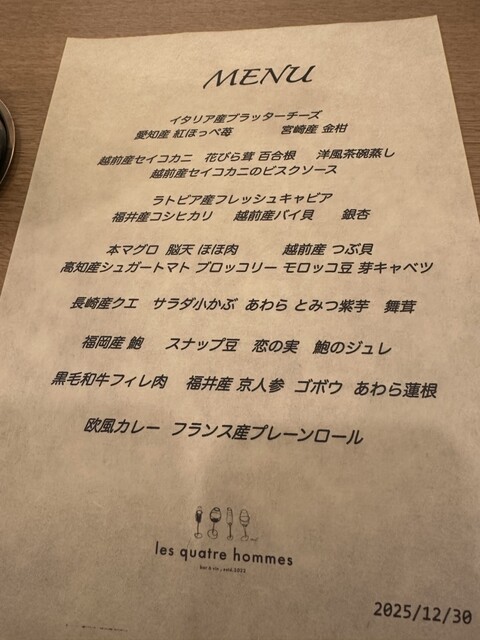 MENU
イタリア産ブラッターチーズ
愛知産 紅ほっぺ苺 宮崎産 金柑
越前産セイコカニ 花びら茸 百合根 洋風茶碗蒸し
越前産セイコカニのビスクソース
ラトビア産フレッシュキャビア
福井産コシヒカリ 越前産バイ貝 銀杏
本マグロ 脳天 ほほ肉 越前産 つぶ貝
高知産シュガートマト ブロッコリー モロッコ豆 芽キャベツ
長崎産クエ サラダ小かぶ あわら とみつ紫芋 舞茸
福岡産 鮑 スナップ豆 恋の実 鮑のジュレ
黒毛和牛フィレ肉 福井産 京人参 ゴボウ あわら蓮根
欧風カレー フランス産プレーンロール
les quatre hommes
bar à vin , estd.2021
2025/12/30